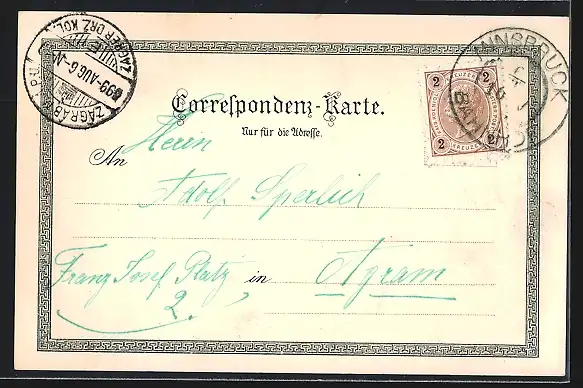 ZÁGRÁB P.U.
ZAGREB DRŽ. KOL.
899 AUG. 6
INNSBRUCK
BAHNHOF
2 KREUZER 2
2 KREUZER 2
Correspondenz-Karte.
Nur für die Adresse.
An Herrn
Adolf Sperlich
Franz Josef Platz in Agram
2.